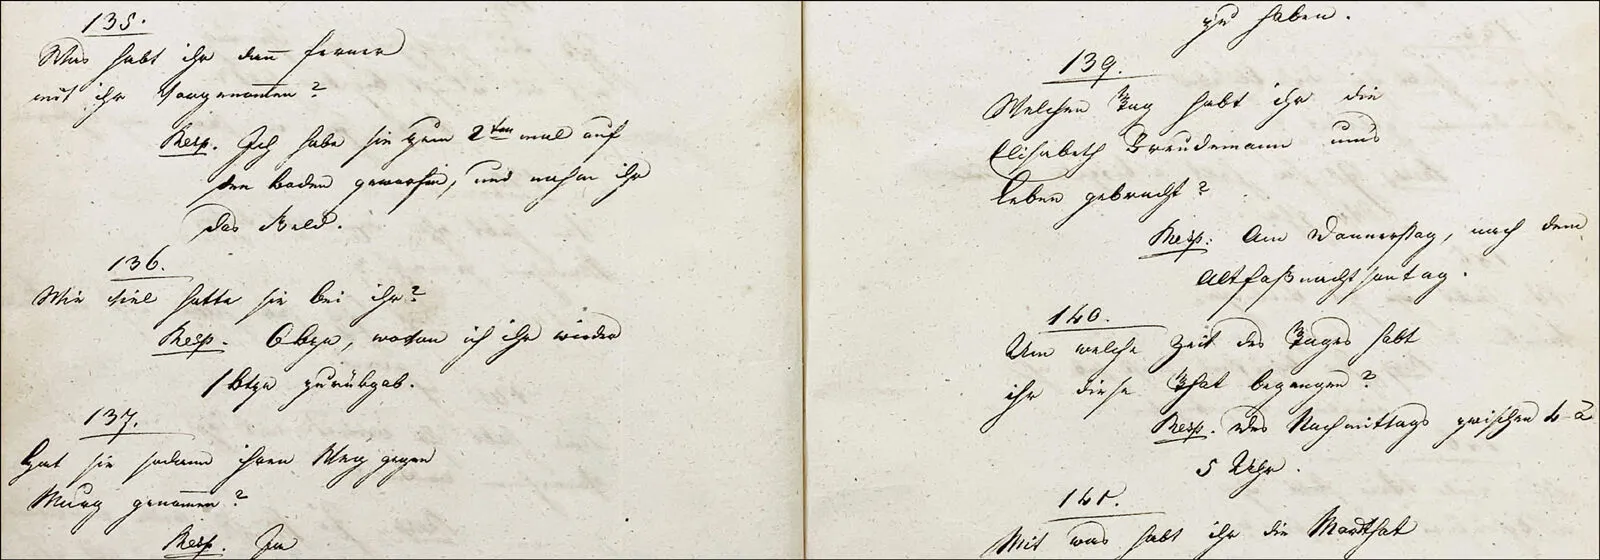 135.
Was habt ihr dan̄ ferner
mit ihr Vorgenom̄en?
Resp. Ich habe sie zum 2ten mal auf
den Boden geworfen, und nahm ihr
das Geld.
136.
Wie viel hatte sie bei ihr?
Resp. 6 btzn, wovon ich ihr wieder
1 btzn zurükgab.
137.
Hat sie sodann ihren Weg gegen
Murg genom̄en?
Resp. Ja
zu haben.
139.
Welchen Tag habt ihr die
Elisabeth Breudemann ums
Leben gebracht?
Resp: Am Donnerstag, nach dem
Altfaßnachtsontag.
140.
Um welche Zeit des Tages habt
ihr diese That begangen?
Resp. Des Nachmittags zwischen 4 à
5 Uhr.
141.
Mit was habt ihr die Mordthat